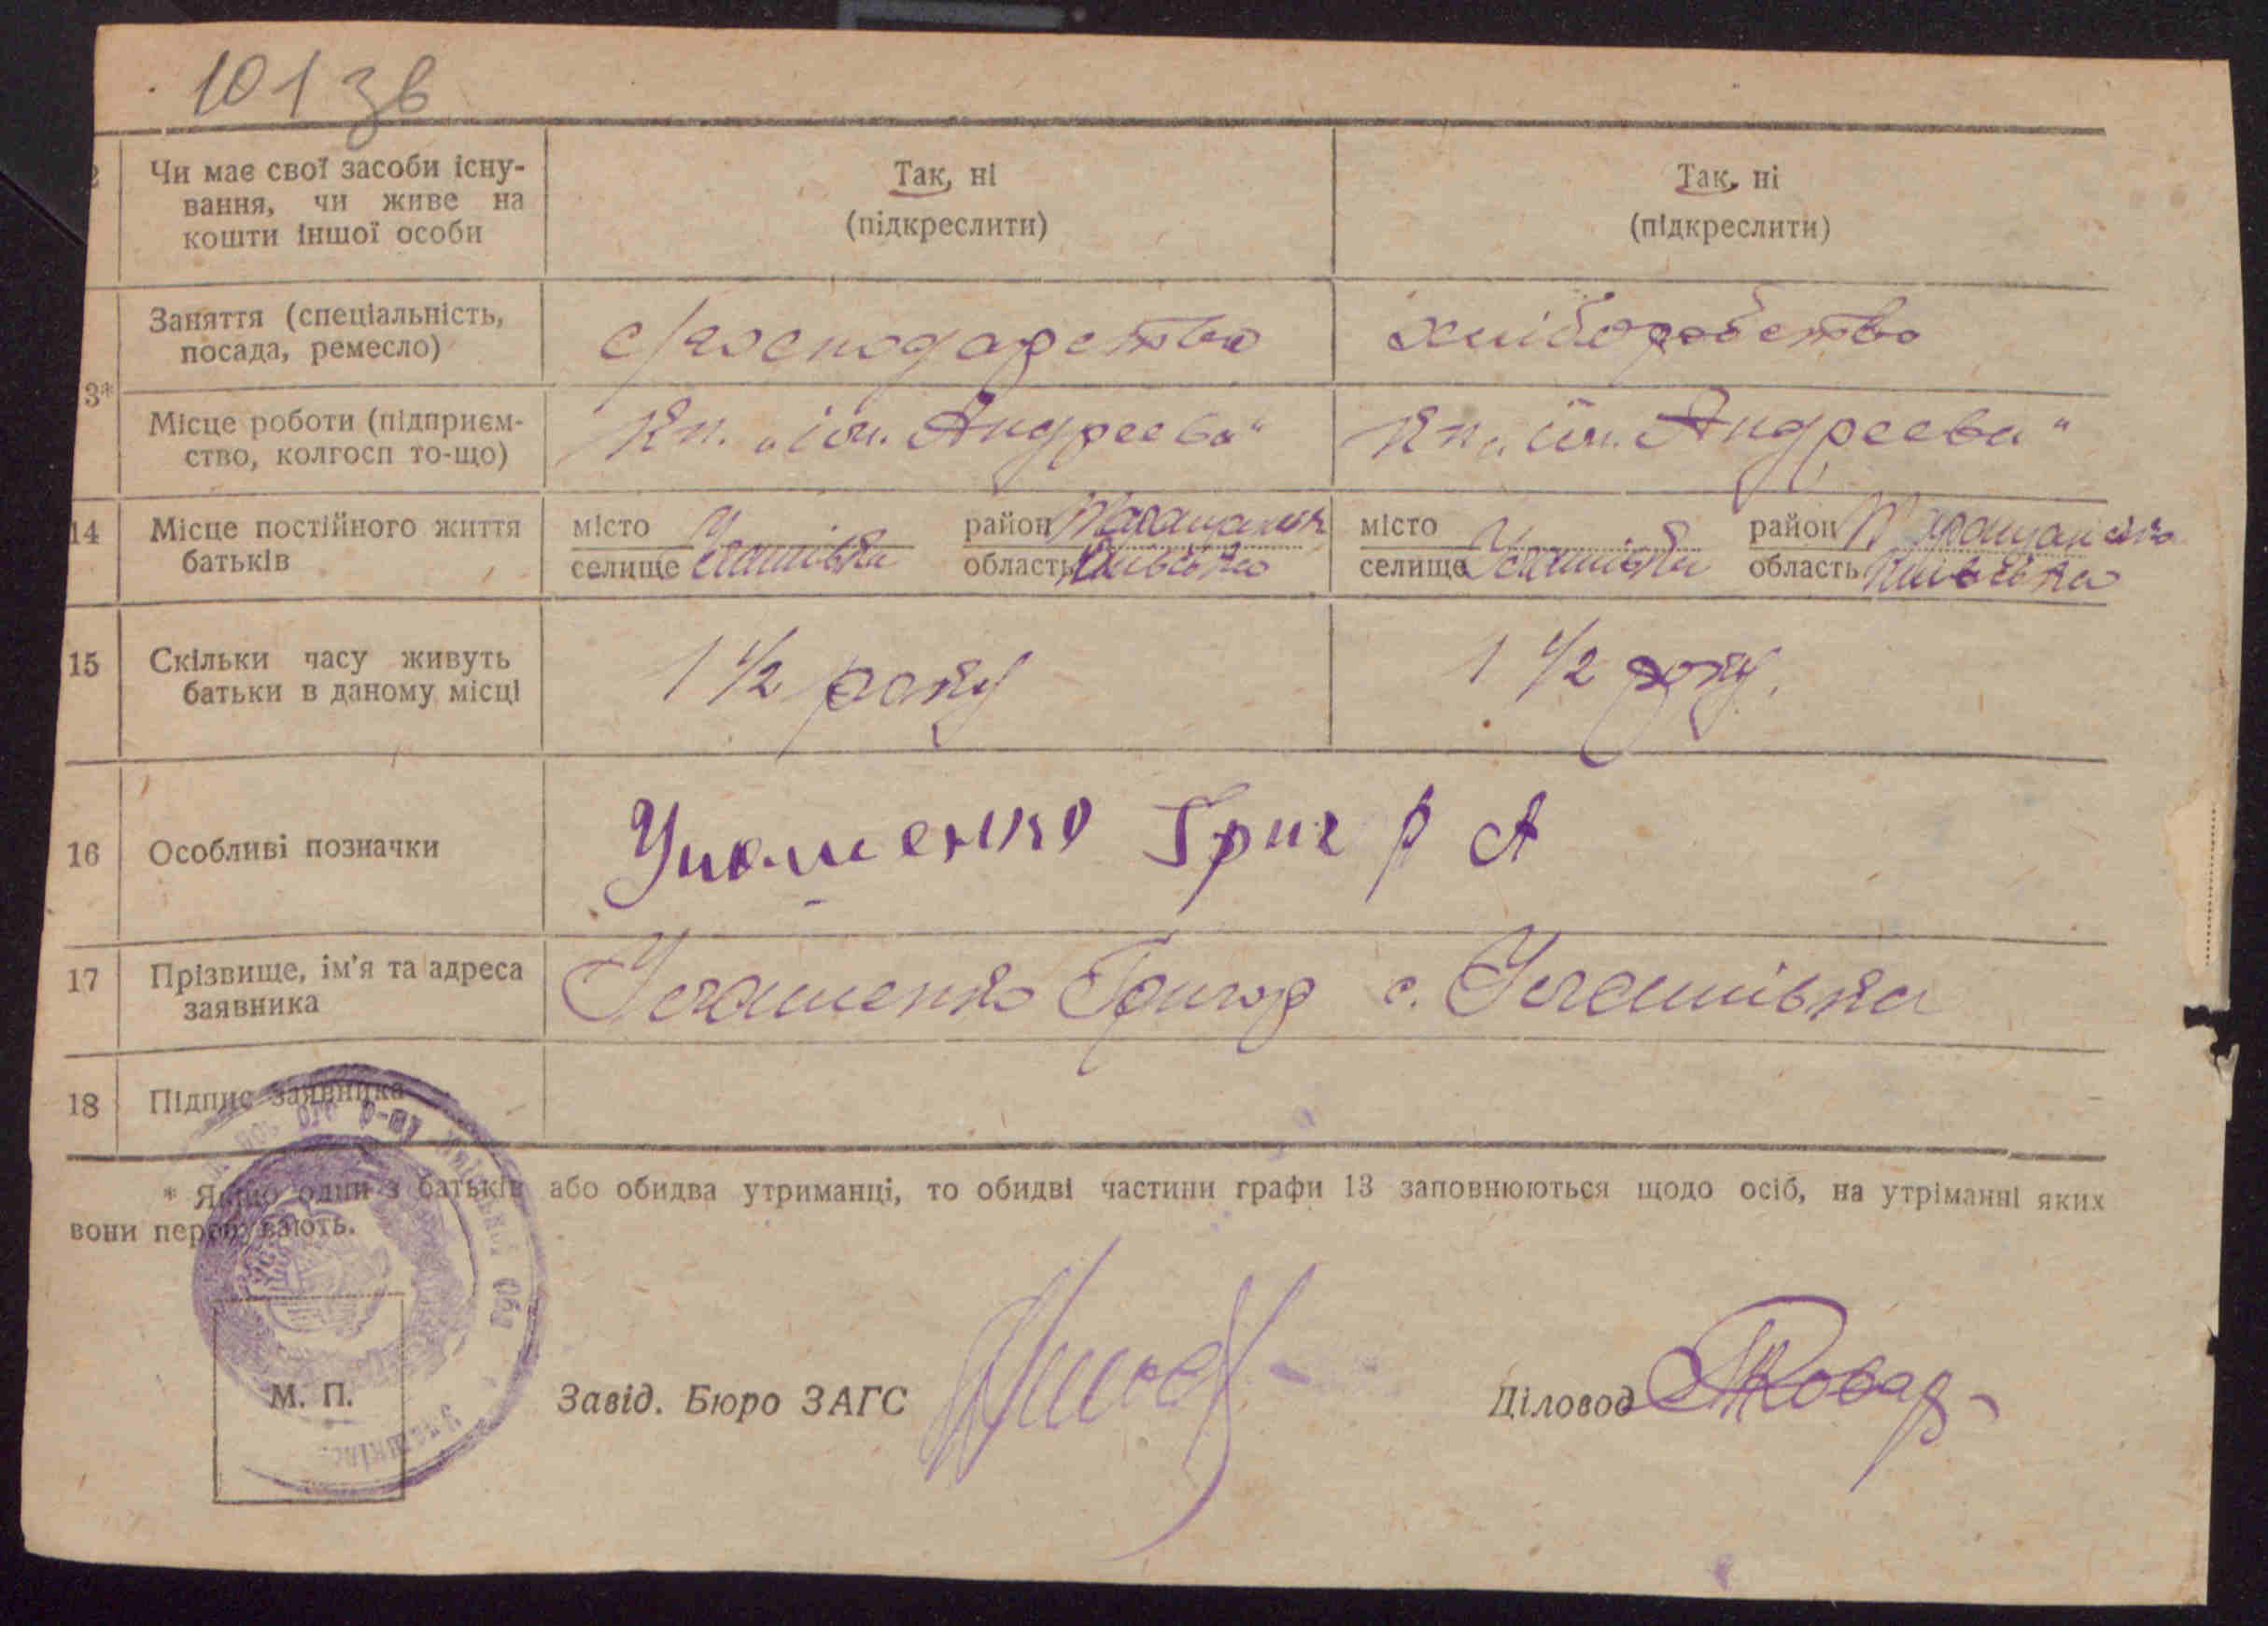 101 зв
2 Чи має свої засоби існу-
вання, чи живе на
кошти іншої особи
Так, ні
(підкреслити)
Так, ні
(підкреслити)
3*
Заняття (спеціальність,
посада, ремесло)
с/господарство
хліборобство
Місце роботи (підприєм-
ство, колгосп то-що)
Кп. „ім. Андреєва"
Кп „ім. Андреєва"
14 Місце постійного життя
батьків
місто
селище
район
область Київська
місто
селище
район Таращанська
область Київська
15 Скільки часу живуть
батьки в даному місці
1 ½ року
1 ½ року.
16 Особливі позначки
Григ р А
17 Прізвище, ім'я та адреса
заявника
Григор с.
18 Підпис заявника
* Якщо один з батьків або обидва утриманці, то обидві частини графи 13 заповнюються щодо осіб, на утріманні яких
вони перебувають.
М. П.
Завід. Бюро ЗАГС
Діловод